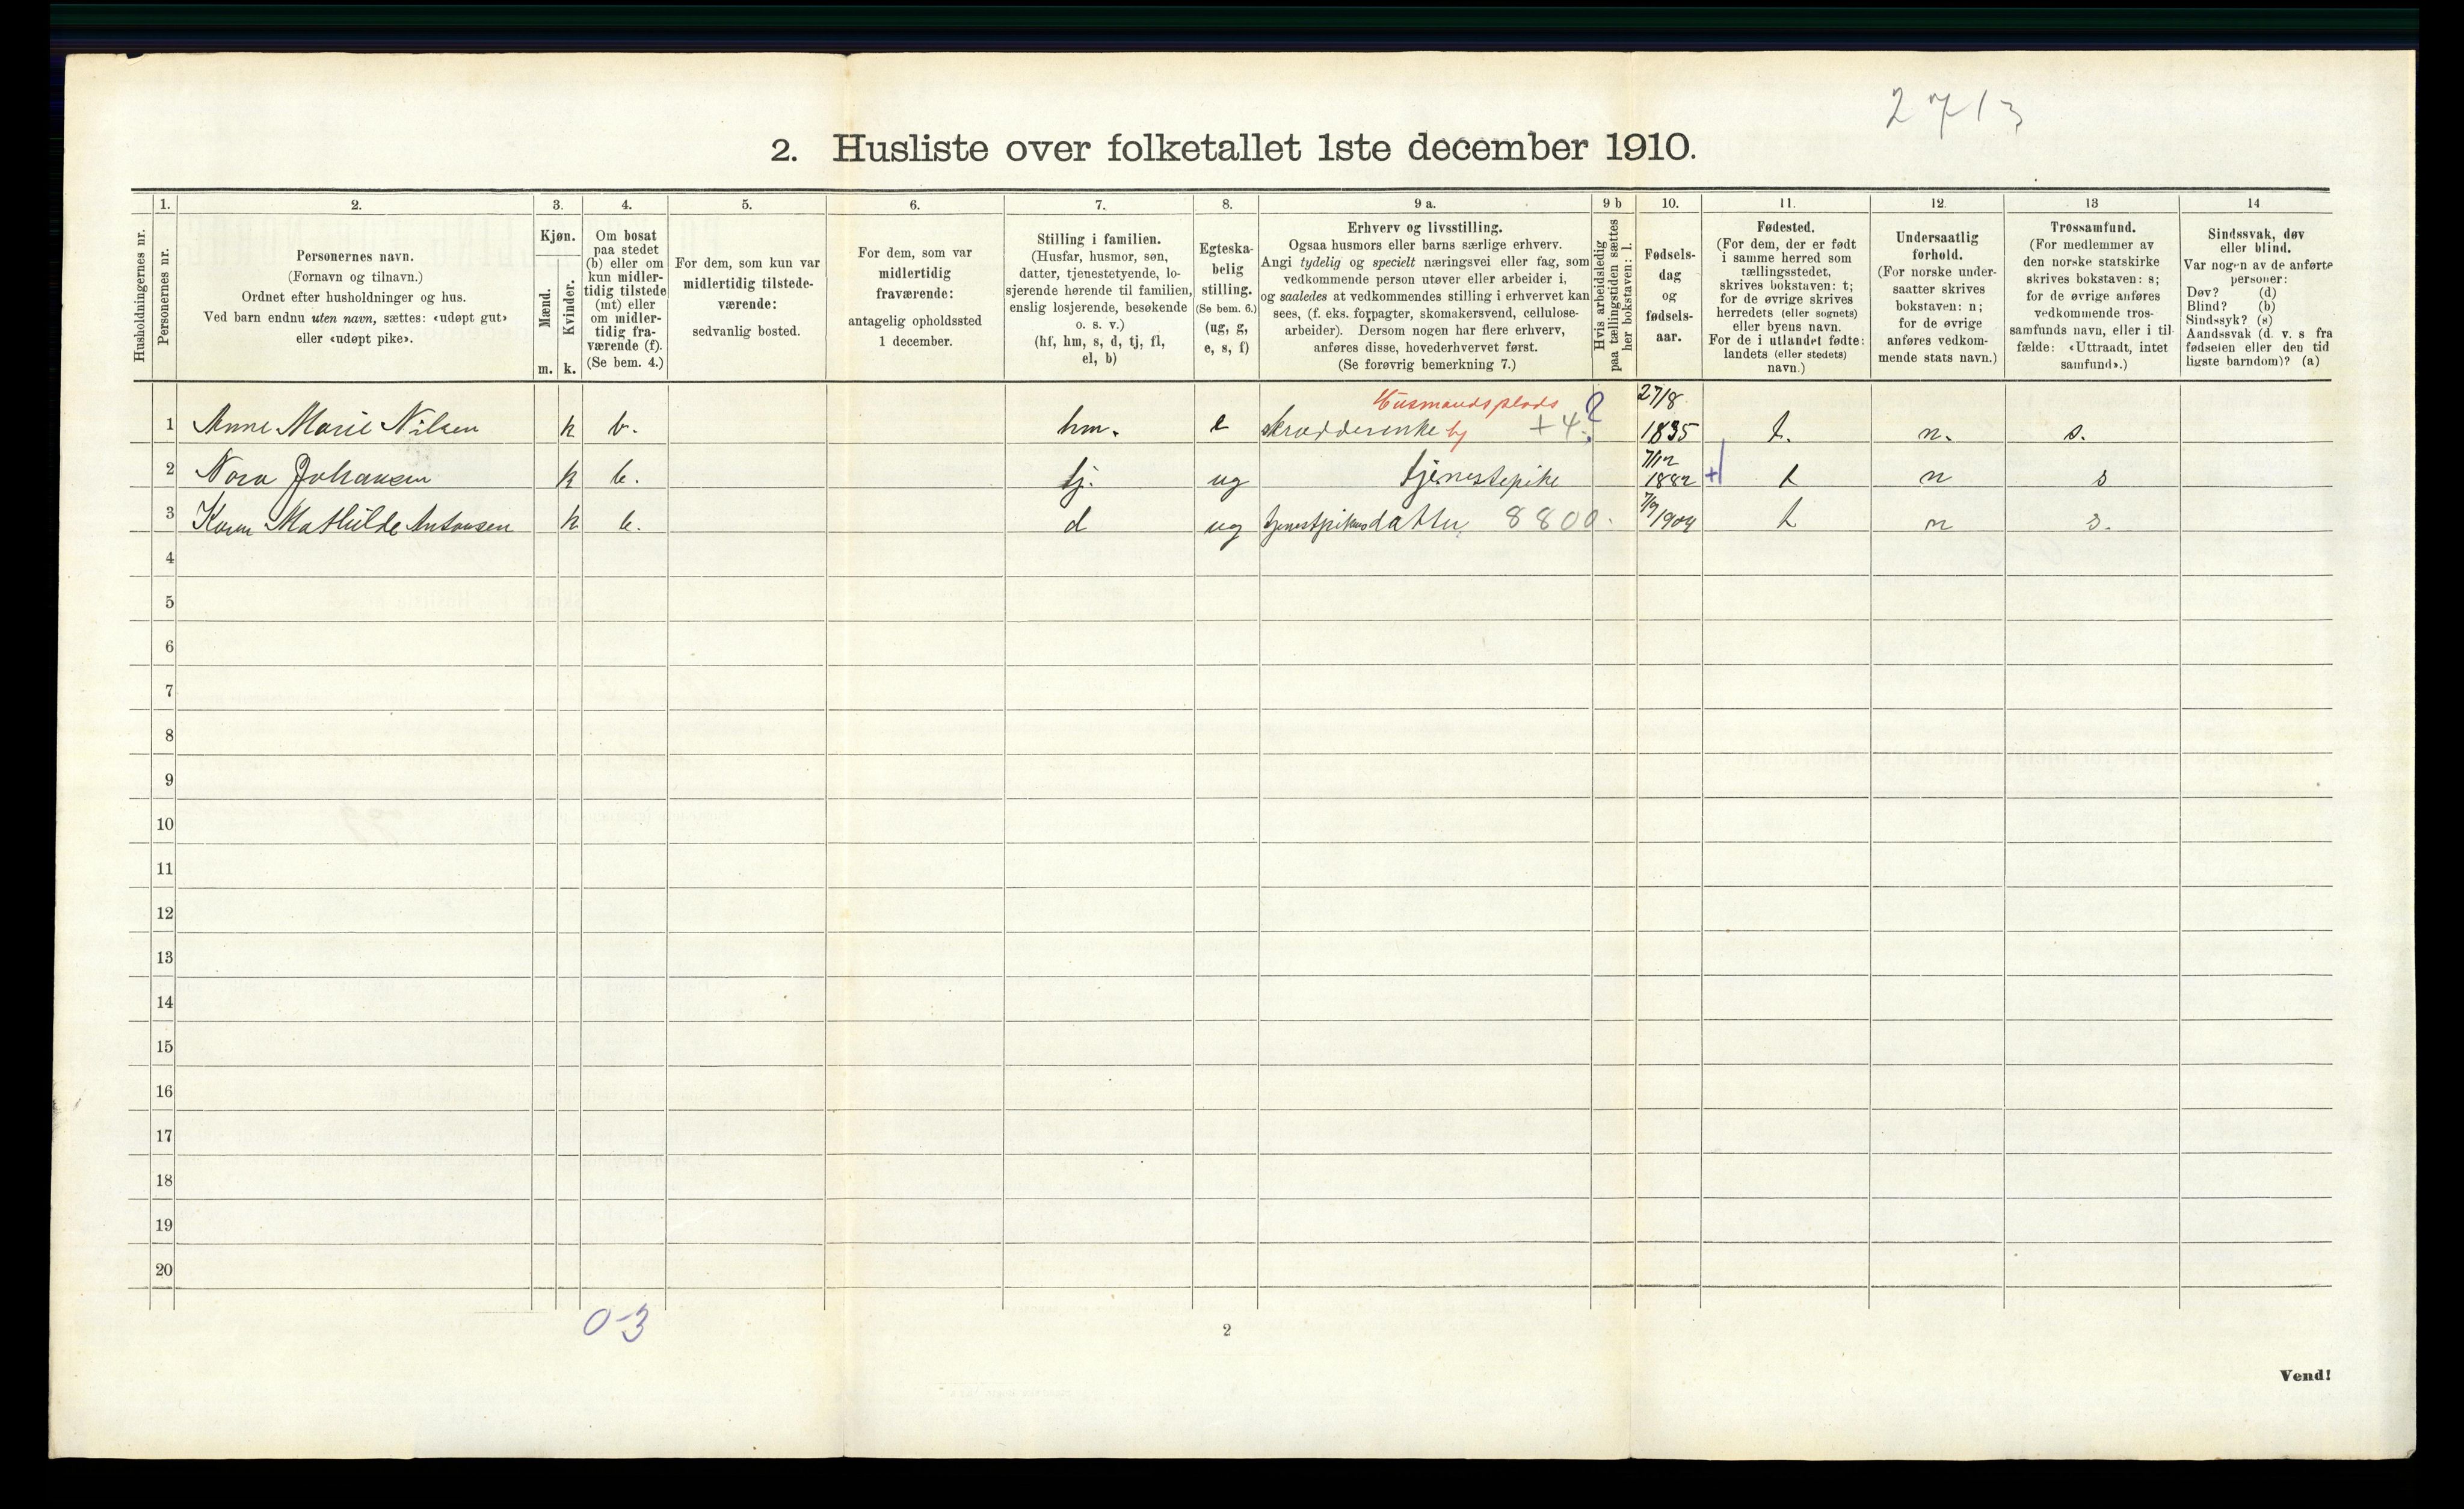 2713
2. Husliste over folketallet 1ste december 1910.
Husholdningernes nr.
1.
Personernes nr.
2.
Personernes navn.
(Fornavn og tilnavn.)
Ordnet efter husholdninger og hus.
Ved barn endnu uten navn, sættes: «udøpt gut»
eller «udøpt pike».
3.
Kjøn.
Mænd.
Kvinder.
m.
k.
4.
Om bosat
paa stedet
(b) eller om
kun midler-
tidig tilstede
(mt) eller
om midler-
tidig fra-
værende (f).
(Se bem. 4.)
5.
For dem, som kun var
midlertidig tilstede-
værende:
sedvanlig bosted.
6.
For dem, som var
midlertidig
fraværende:
antagelig opholdssted
1 december.
7.
Stilling i familien.
(Husfar, husmor, søn,
datter, tjenestetyende, lo-
sjerende hørende til familien,
enslig losjerende, besøkende
o. s. v.)
(hf, hm, s, d, tj, fl,
el, b)
8.
Egteska-
belig
stilling.
(Se bem. 6.)
(ug, g,
e, s, f)
9 a.
Erhverv og livsstilling.
Ogsaa husmors eller barns særlige erhverv.
Angi tydelig og specielt næringsvei eller fag, som
vedkommende person utøver eller arbeider i,
og saaledes at vedkommendes stilling i erhvervet kan
sees, (f. eks. forpagter, skomakersvend, cellulose-
arbeider). Dersom nogen har flere erhverv,
anføres disse, hovederhvervet først.
(Se forøvrig bemerkning 7.)
9 b
Hvis arbeidsledig
paa tællingstiden sættes
her bokstaven: l.
10.
Fødsels-
dag
og
fødsels-
aar.
11.
Fødested.
(For dem, der er født
i samme herred som
tællingsstedet,
skrives bokstaven: t;
for de øvrige skrives
herredets (eller sognets)
eller byens navn.
For de i utlandet fødte:
landets (eller stedets)
navn.)
12.
Undersaatlig
forhold.
(For norske under-
saatter skrives
bokstaven: n;
for de øvrige
anføres vedkom-
mende stats navn.)
13
Trossamfund.
(For medlemmer av
den norske statskirke
skrives bokstaven: s;
for de øvrige anføres
vedkommende tros-
samfunds navn, eller i til-
fælde: «Uttraadt, intet
samfund».)
14
Sindssvak, døv
eller blind.
Var nogen av de anførte
personer:
Døv? (d)
Blind? (b)
Sindssyk? (s)
Aandssvak (d. v. s fra
fødselen eller den tid
ligste barndom)? (a)
Husmandsplads ? 27/8
1 Anne Marie Nilsen k b. hm. e skrædderenke bj +4. 1835 t. n. s.
7/12
2 Nora Johansen k b. tj. ug tjenestepike 1882 + t n s
3 Karen Mathilde Antonsen k b. d ug tjenestpikes datter 8800. 7/9 1904 t n s.
4
5
6
7
8
9
10
11
12
13
14
15
16
17
18
19
20
0-3
2
Vend!